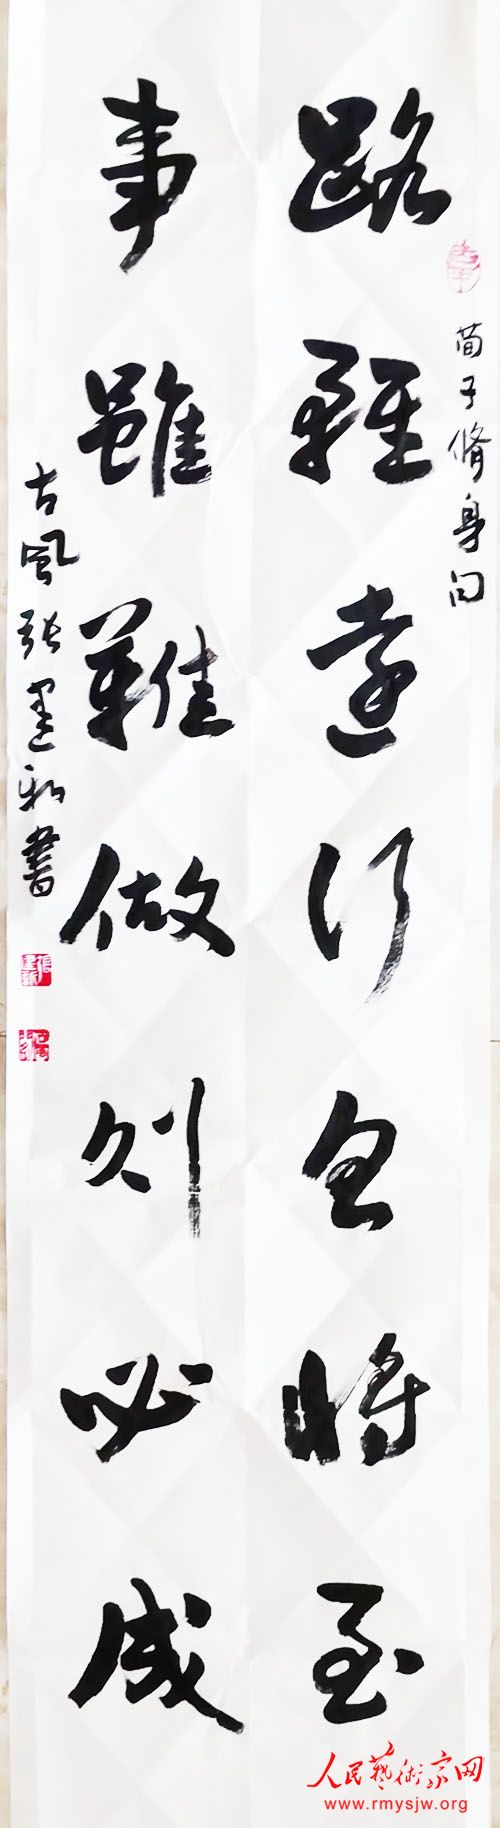 荀子脩身句
路雖遠行將至
事雖難做则必成
古風张建新書
人民藝術家网
www.rmysjw.org